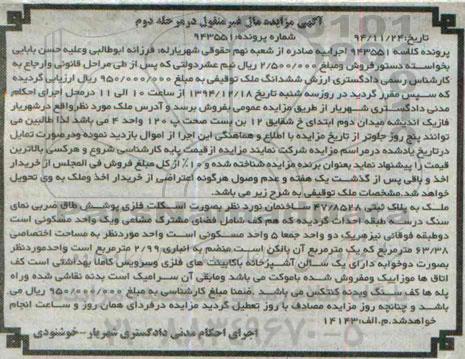 آگهی مزایده مال غیر منقول در مرحله دوم
تاریخ: ۹۴/۱۱/۲۴ شماره پرونده: ۹۴۳۵۵۱
پرونده کلاسه ۹۴۳۵۵۱ اجراییه صادره از شعبه نهم حقوقی شهریارله: فرزانه ابوطالبی وعلیه حسن بابایی
بخواسته دستورفروش ومبلغ ۲/۵۰۰/۰۰۰ ریال نیم عشردولتی که پس از طی مراحل قانونی وارجاع به
کارشناس رسمی دادگستری ارزش ششدانگ ملک توقیفی به مبلغ ۹۵۰/۰۰۰/۰۰۰ ریال ارزیابی گردیده
که سپس مقرر گردید در روزسه شنبه تاریخ ۱۳۹۴/۱۲/۱۸ از ساعت ۱۰ الی ۱۱ درمحل اجرای احکام
مدنی دادگستری شهریار از طریق مزایده عمومی بفروش برسد و آدرس ملک مورد نظرواقع درشهریار
فازیک اندیشه میدان دوم ابتدای خ شقایق ۱۲ بن بست صحت پ ۱۲۰ واحد ۴ می باشد لذا طالبین می
توانند پنج روز جلوتر از تاریخ مزایده با اطلاع و هماهنگی این اجرا از اموال بازدید نموده ودرصورت تمایل
درتاریخ یادشده درمراسم مزایده شرکت نمایند مزایده ازقیمت پایه کارشناسی شروع و هرکسی بالاترین
قیمت را پیشنهاد نماید بعنوان برنده مزایده شناخته شده و۱۰٪ از کل مبلغ فروش فی المجلس از خریدار
اخذ و باقی پس از گذشت یک هفته و عدم وصول هرگونه اعتراضی از خریدار اخذ وملک به وی تحویل
خواهد شد.مشخصات ملک توقیفی به شرح زیر می باشد.
ملک به پلاک ثبتی ۴۷/۸۵۲۸ ساختمان مورد نظر بصورت اسکلت فلزی پوشش طاق ضربی نمای
سنگ درسه طبقه احداث گردیده که هم کف شامل فضای مشترک مشاعی ویک واحد مسکونی است
دوطبقه فوقانی نیزهریک دو واحد جمعا ۵ واحد مسکونی است واحد موردنظر به مساحت اختصاصی
۶۳/۳۸ مترمربع که یک مترمربع آن بالکن است منضم به انباری ۲/۹۹ مترمربع است واحدموردنظر
بصورت دوخوابه دارای یک سالن آشپزخانه باکابینت های فلزی وسرویس کاملا بهداشتی است کف
اتاق ها موزاییک ومفروش شده باموکت می باشد ومابقی آن سرامیک است بدنه نقاشی شده وراه
پله ها کف سنگ وبدنه کنتکس می باشد. ضمنا مبلغ کارشناسی به مبلغ ۹۵۰/۰۰۰/۰۰۰ ریال می
باشد و چنانچه روز مزایده مصادف با روز تعطیل گردید مزایده درفردای همان روز و ساعت انجام
خواهدشد.م.الف:۱۴۱۴۳
اجرای احکام مدنی دادگستری شهریار-خوشنودی